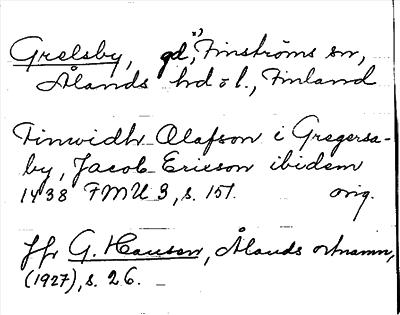 Grelsby, gd, Finströms sn,
Ålands hd o l., Finland
Finwidh Olafson i Gregersa-
by, Jacob Ericson ibidem
1438 FMU 3, s. 151. orig.
Jfr G. Hausen, Ålands ortnamn,
(1927), s. 26.